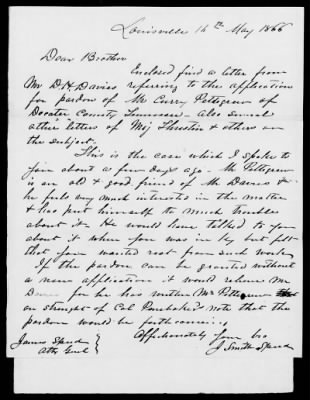 Louisville 14th May 1866
Dear Brother
Enclosed find a letter from
Mr D H Davies referring to the application
for pardon of Mr Curry Pettigrew of
Decatur County Tennessee - also several
other letters of Maj Thruston & others on
the subject.
This is the case which I spoke to
you about a few days ago - Mr Pettigrew
is an old & good friend of Mr Davies &
he feels very much interested in the matter
& has put himself to much trouble
about it. He would have talked to you
about it when you was in Ky but felt
that you wanted rest from such work.
If the pardon can be granted without
a new application it would relieve Mr
for he has written Mr Pettigrew
on strength of Col note that the
pardon would be forthcoming.
Affectionately your bro
J Smith Speed
James Speed
Atty Genl